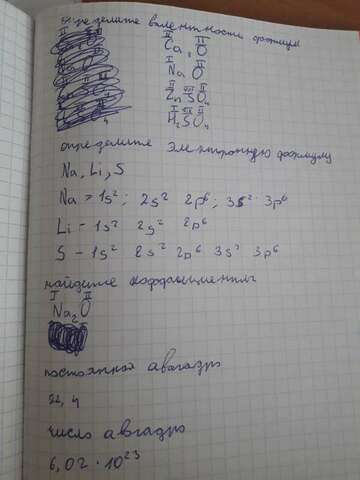 определите валентность формул
II II
Ca, O
I II
Na O
II VI II
Zn SO₄
I VI II
H₂SO₄
определите электронную формулу
Na, Li, S
Na = 1s²; 2s² 2p⁶; 3s² 3p⁶
Li - 1s² 2s² 2p⁶
S - 1s² 2s² 2p⁶ 3s² 3p⁶
найдите коэффициенты
I II
Na₂O
постоянная авогадро
22,4
число авгадро
6,02 · 10²³